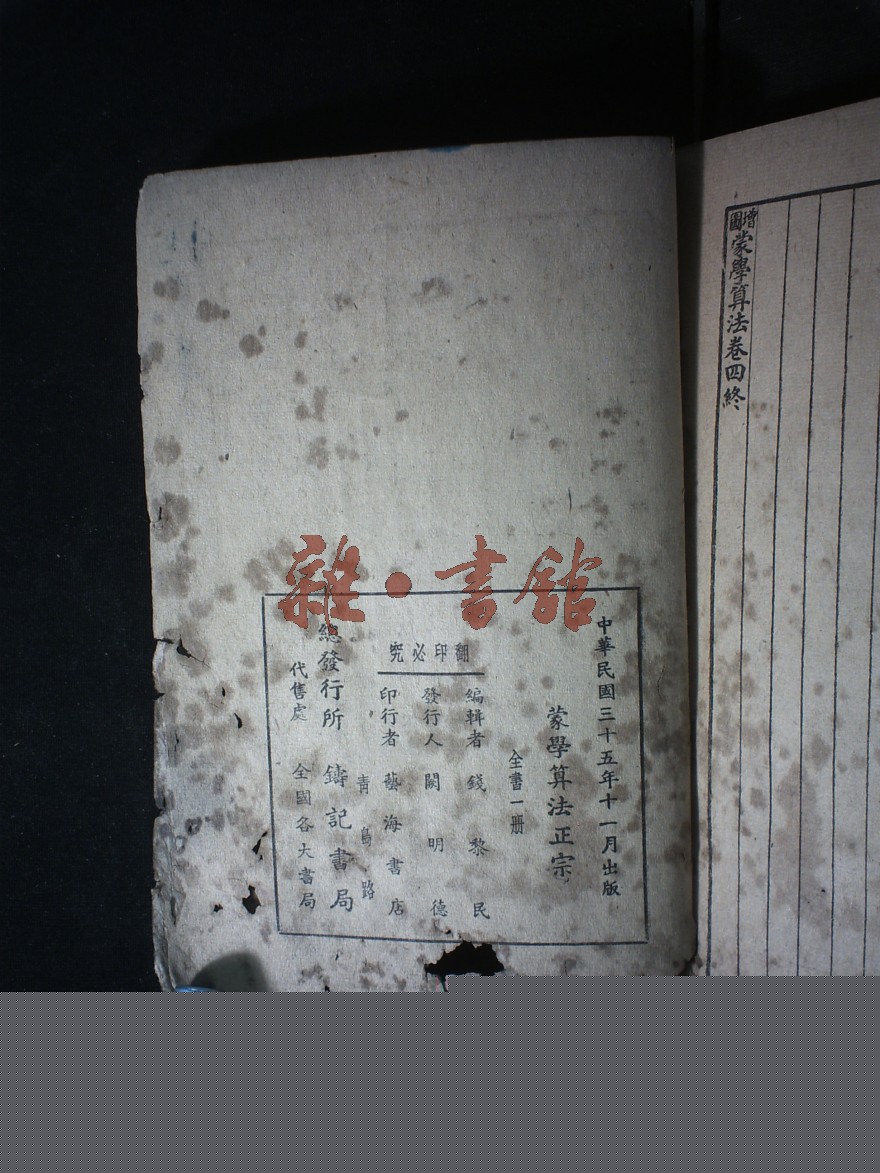 增圖蒙學算法卷四終
雜·書館
中華民國三十五年十一月出版
蒙學算法正宗
全書一册
翻印必究
編輯者 錢黎民
發行人 闕明德
印行者 藝海書店
青島路
總發行所 鑄記書局
代售處 全國各大書局